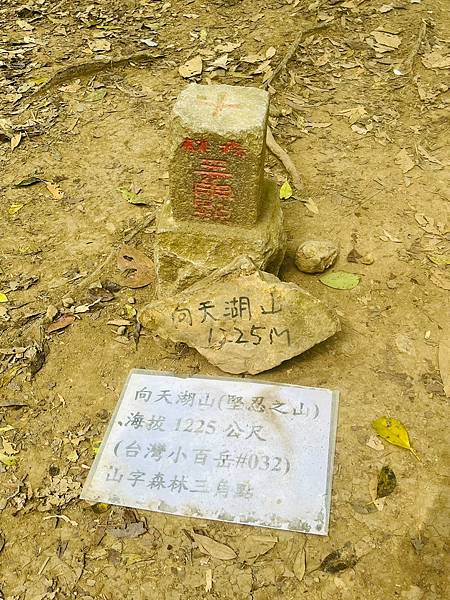 三角點
向天湖山
1225M
向天湖山(堅忍之山)
、海拔 1225 公尺
(台灣小百岳#032)
山字森林三角點